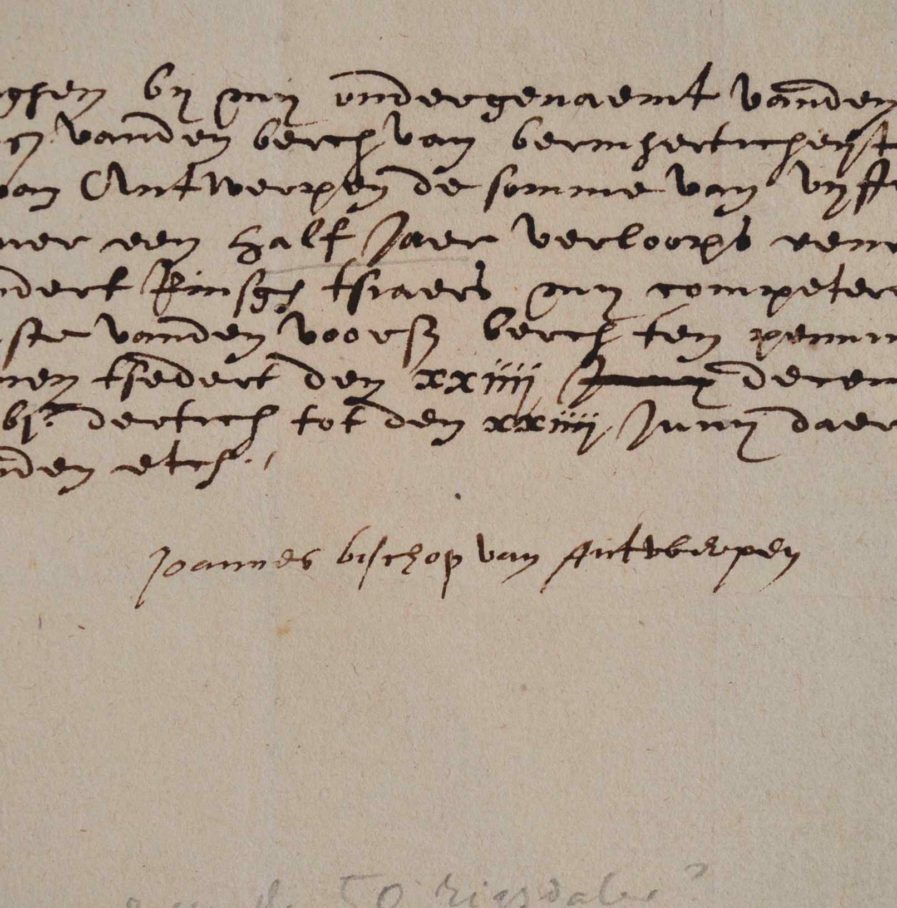 ghen by my ondergenaemt vanden
vanden berch van bermherticheyt
van Antwerpen de somme van vyff
ver een half Jaer verloops
ndert Rinsch tsiaers my competere
ste vanden voors berch ten penni
nen tsedert den xxiiij Juny decem
bj.c dertich tot den xxiiij Juny daer
nden etc.
Joannes bischop van Antwerpen
50